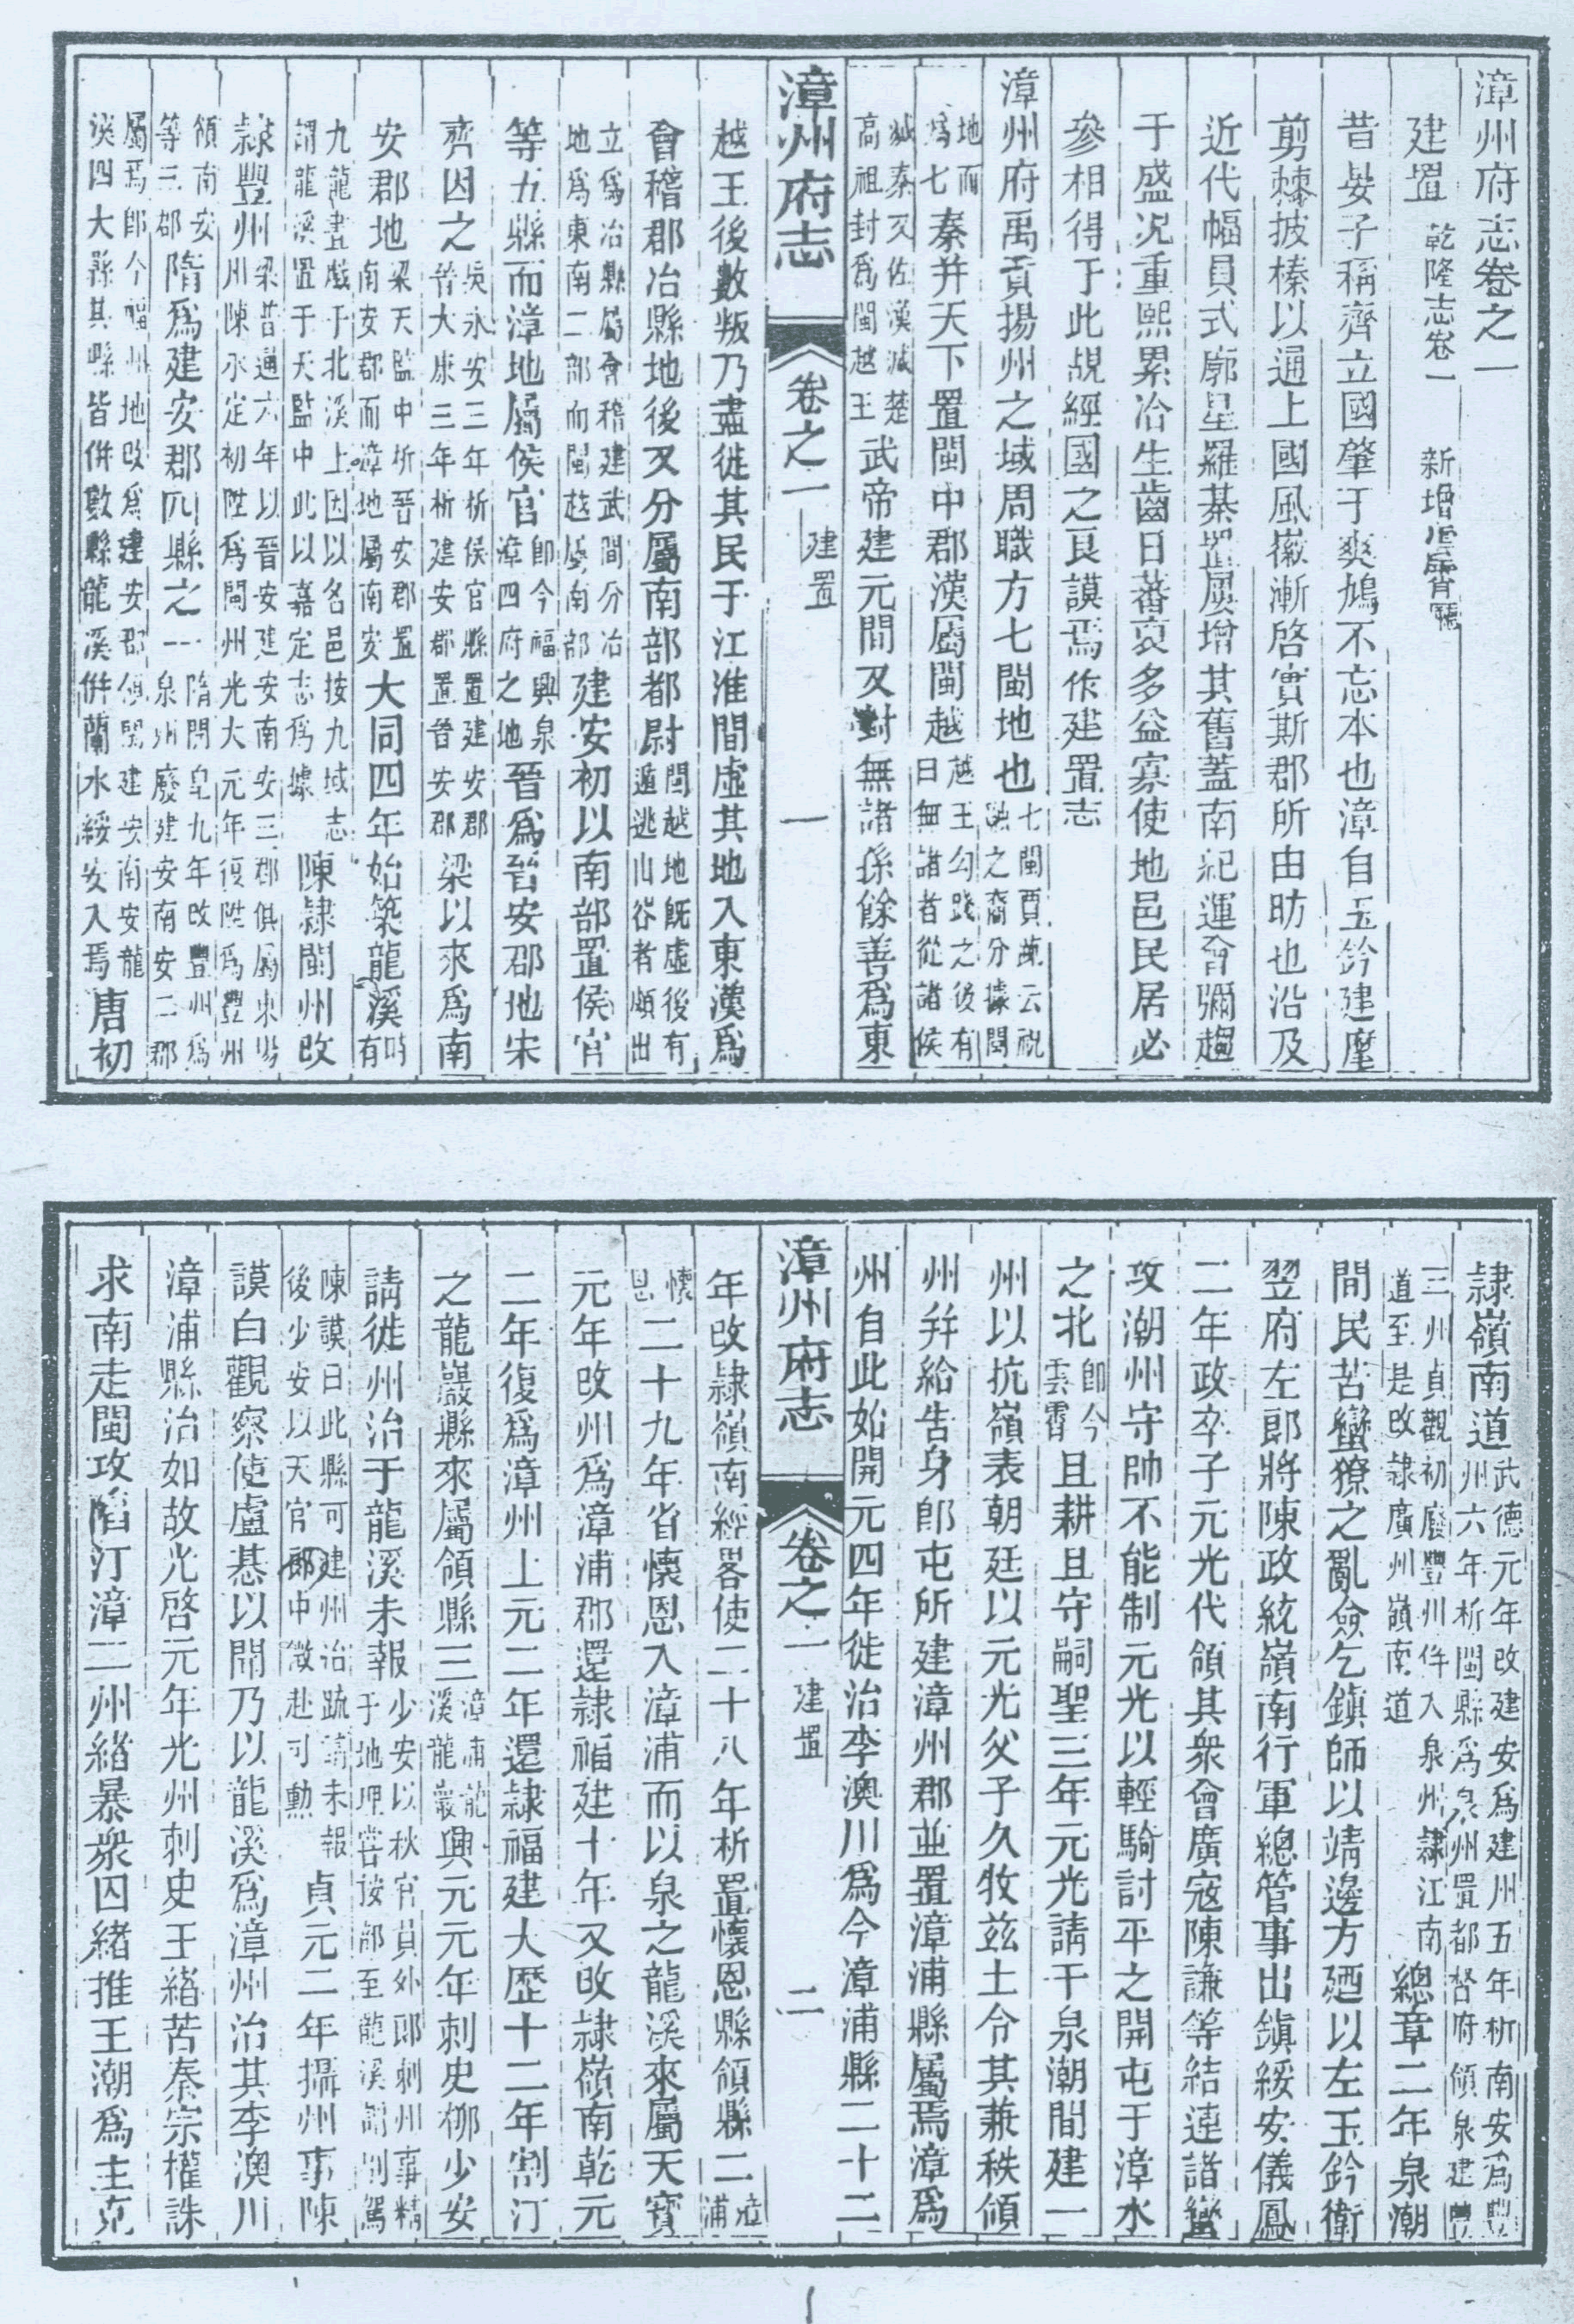 漳州府志卷之一
建置 乾隆志卷一 新增雲霄廳
昔晏子稱齊立國肇于爽鳩不忘本也漳自玉鈐建麾
剪棘披榛以通上國風徽漸啓實斯郡所由昉也沿及
近代幅員式廓星羅棊置屢增其舊蓋南紀運會彌趨
于盛况重熙累洽生齒日蕃裒多益寡使地邑民居必
參相得于此覘經國之良謨焉作建置志
漳州府禹貢揚州之域周職方七閩地也 七閩賈疏云祝
融之裔分據閩
地而
爲七 秦幷天下置閩中郡漢屬閩越 越王勾踐之後有
曰無諸者從諸侯
滅秦又佐漢滅楚
高祖封爲閩越王 武帝建元間又封無諸孫餘善爲東
漳州府志 卷之一 建置 一
越王後數叛乃盡徙其民于江淮間虛其地入東漢爲
會稽郡冶縣地後又分屬南部都尉 閩越地旣虛後有
遁逃山谷者頗出
立爲冶縣屬會稽建武間分冶
地爲東南二部而閩越屬南部 建安初以南部置侯官
等五縣而漳地屬侯官 卽今福興泉
漳四府之地 晉爲晉安郡地宋
齊因之 吳永安三年析侯官縣置建安郡
晉太康三年析建安郡置晉安郡 梁以來爲南
安郡地 梁天監中析晉安郡置
南安郡而漳地屬南安 大同四年始築龍溪 時有
九龍晝戲于北溪上因以名邑按九域志
謂龍溪置于天監中此以嘉定志爲據 陳隸閩州改
隸豐州 梁普通六年以晉安建安南安三郡俱屬東揚
州陳永定初陞爲閩州光大元年復陞爲豐州
領南安
等三郡 隋爲建安郡四縣之一 隋開皇九年改豐州爲
泉州廢建安南安二郡
屬焉卽今福州地改爲建安郡領閩建安南安龍
溪四大縣其縣皆併數縣龍溪併蘭水綏安入焉 唐初
隸嶺南道 武德元年改建安爲建州五年析南安爲豐
州六年析閩縣爲泉州置都督府領泉建豐
三州貞觀初廢豐州倂入泉州隸江南
道至是改隸廣州嶺南道 總章二年泉潮
間民苦蠻獠之亂僉乞鎮師以靖邊方廼以左玉鈐衛
翌府左郎將陳政統嶺南行軍總管事出鎮綏安儀鳳
二年政卒子元光代領其衆會廣寇陳謙等結連諸蠻
攻潮州守帥不能制元光以輕騎討平之開屯于漳水
之北 卽今
雲霄 且耕且守嗣聖三年元光請于泉潮間建一
州以抗嶺表朝廷以元光父子久牧茲土令其兼秩領
州幷給告身卽屯所建漳州郡並置漳浦縣屬焉漳爲
州自此始開元四年徙治李澳川爲今漳浦縣二十二
漳州府志 卷之一 建置 二
年改隸嶺南經畧使二十八年析置懷恩縣領縣二 漳
浦
懷
恩 二十九年省懷恩入漳浦而以泉之龍溪來屬天寶
元年改州爲漳浦郡還隸福建十年又改隸嶺南乾元
二年復爲漳州上元二年還隸福建大歷十二年割汀
之龍巖縣來屬領縣三 漳浦龍
溪龍巖 興元元年刺史柳少安
請徙州治于龍溪未報 少安以秋官員外郎刺州事精
于地理嘗按部至龍溪謂別駕
陳謨曰此縣可建州治疏請未報
後少安以天官郎中徵赴可勳 貞元二年攝州事陳
謨白觀察使盧惎以聞乃以龍溪爲漳州治其李澳川
漳浦縣治如故光啓元年光州刺史王緒苦秦宗權誅
求南走閩攻陷汀漳二州緒暴衆囚緒推王潮爲主克